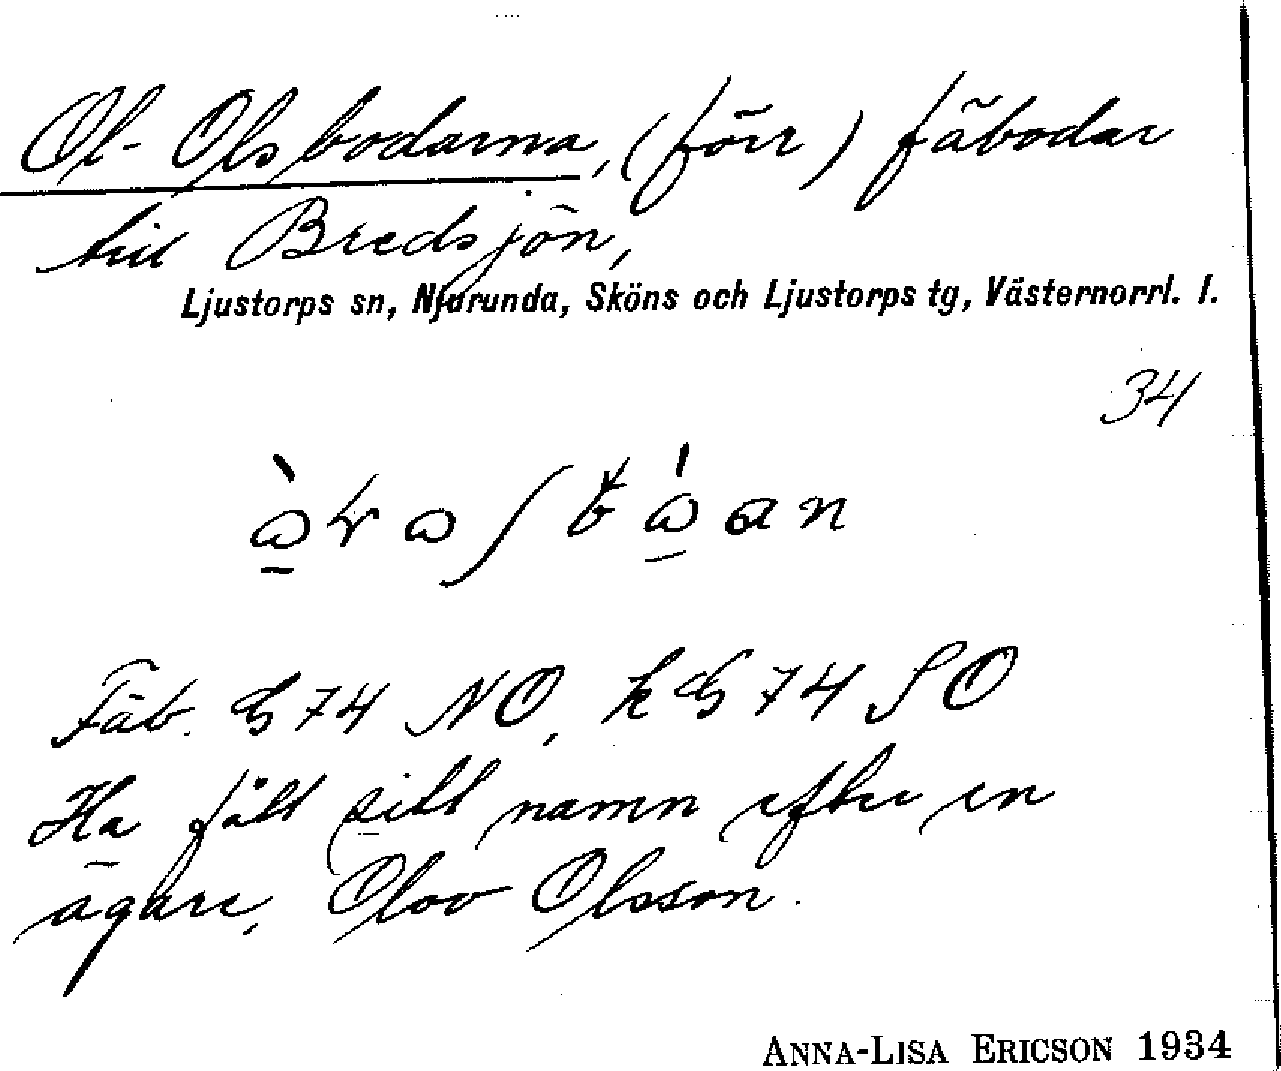 Ol-Olsbodarna, (förr) fäbodar
till Bredsjön,
Ljustorps sn, Njurunda, Sköns och Ljustorps tg, Västernorrl. l.
34
Fäb. G 74 NO, k G 74 SO
Ha fått sitt namn efter en
ägare, Olov Olsson.
ANNA-LISA ERICSON 1934